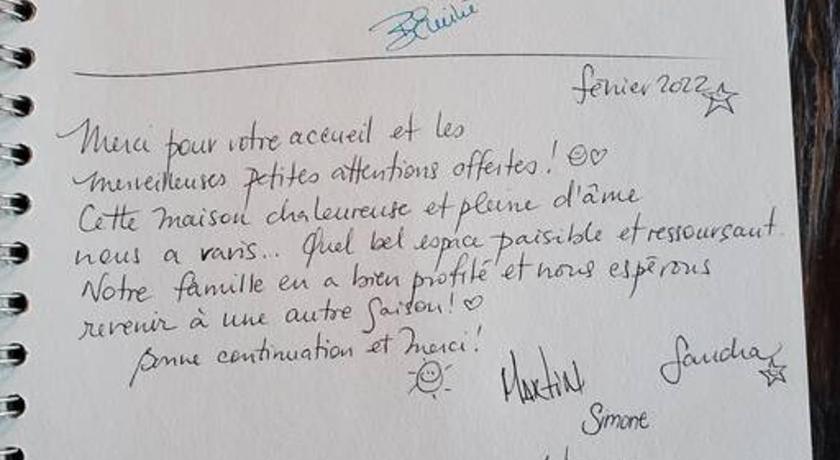 février 2022
Merci pour votre acceuil et les
merveilleuses petites attentions offertes!
Cette maison chaleureuse et pleine d'âme
nous a ravis... Quel bel espace paisible et ressourçant.
Notre famille en a bien profité et nous espérons
revenir à une autre saison!
Bonne continuation et merci!
Martin
Sandra
Simone